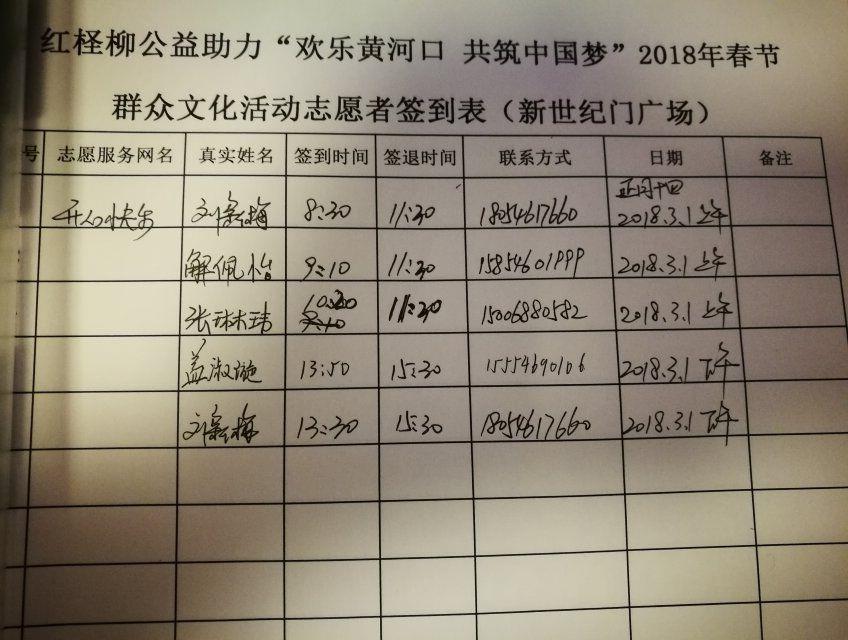 红柽柳公益助力“欢乐黄河口 共筑中国梦”2018年春节
群众文化活动志愿者签到表（新世纪门广场）
号 志愿服务网名 真实姓名 签到时间 签退时间 联系方式 日期 备注
正月十四
开心快乐 刘 梅 8:30 11:30 18054617660 2018.3.1 上午
解佩怡 9:10 11:30 15854601999 2018.3.1 上午
张琳玮 10:20 11:30 15006880582 2018.3.1 上午
盖淑 13:50 15:30 15554690106 2018.3.1 下午
刘 梅 13:30 15:30 18054617660 2018.3.1 下午